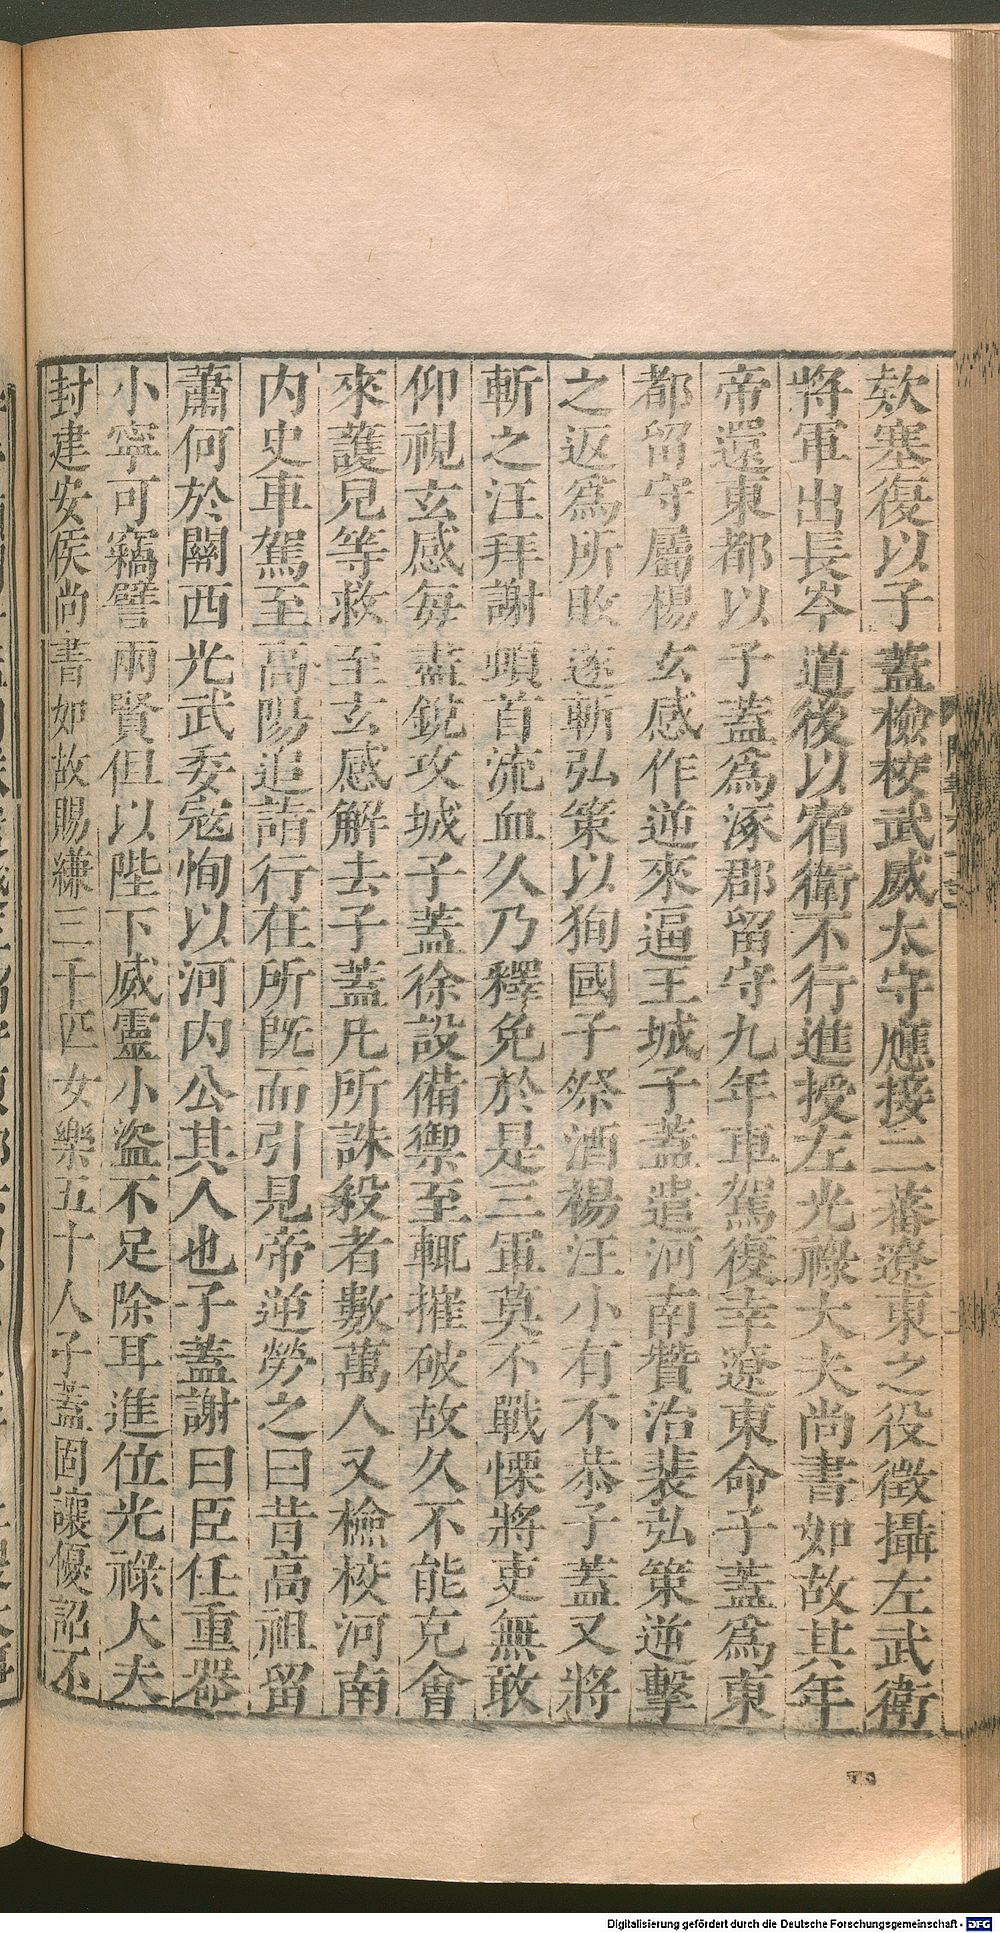 欵塞復以子蓋檢校武威太守應接二蕃遼東之役徵攝左武衛
將軍出長岑道後以宿衛不行進授左光祿大夫尚書如故其年
帝還東都以子蓋爲涿郡留守九年車駕復幸遼東命子蓋爲東
都留守屬楊玄感作逆來逼王城子蓋遣河南贊治裴弘策逆擊
之返爲所敗遂斬弘策以狥國子祭酒楊汪小有不恭子蓋又將
斬之汪拜謝頓首流血久乃釋免於是三軍莫不戰慄將吏無敢
仰視玄感每盡銳攻城子蓋徐設備禦至輒摧破故久不能克會
來護兒等救至玄感解去子蓋凡所誅殺者數萬人又檢校河南
内史車駕至高陽追詣行在所既而引見帝逆勞之曰昔高祖留
蕭何於關西光武委寇恂以河内公其人也子蓋謝曰臣任重器
小寧可竊譬兩賢但以陛下威靈小盜不足除耳進位光祿大夫
封建安侯尚書如故賜縑三千匹女樂五十人子蓋固讓優詔不
Digitalisierung gefördert durch die Deutsche Forschungsgemeinschaft - DFG